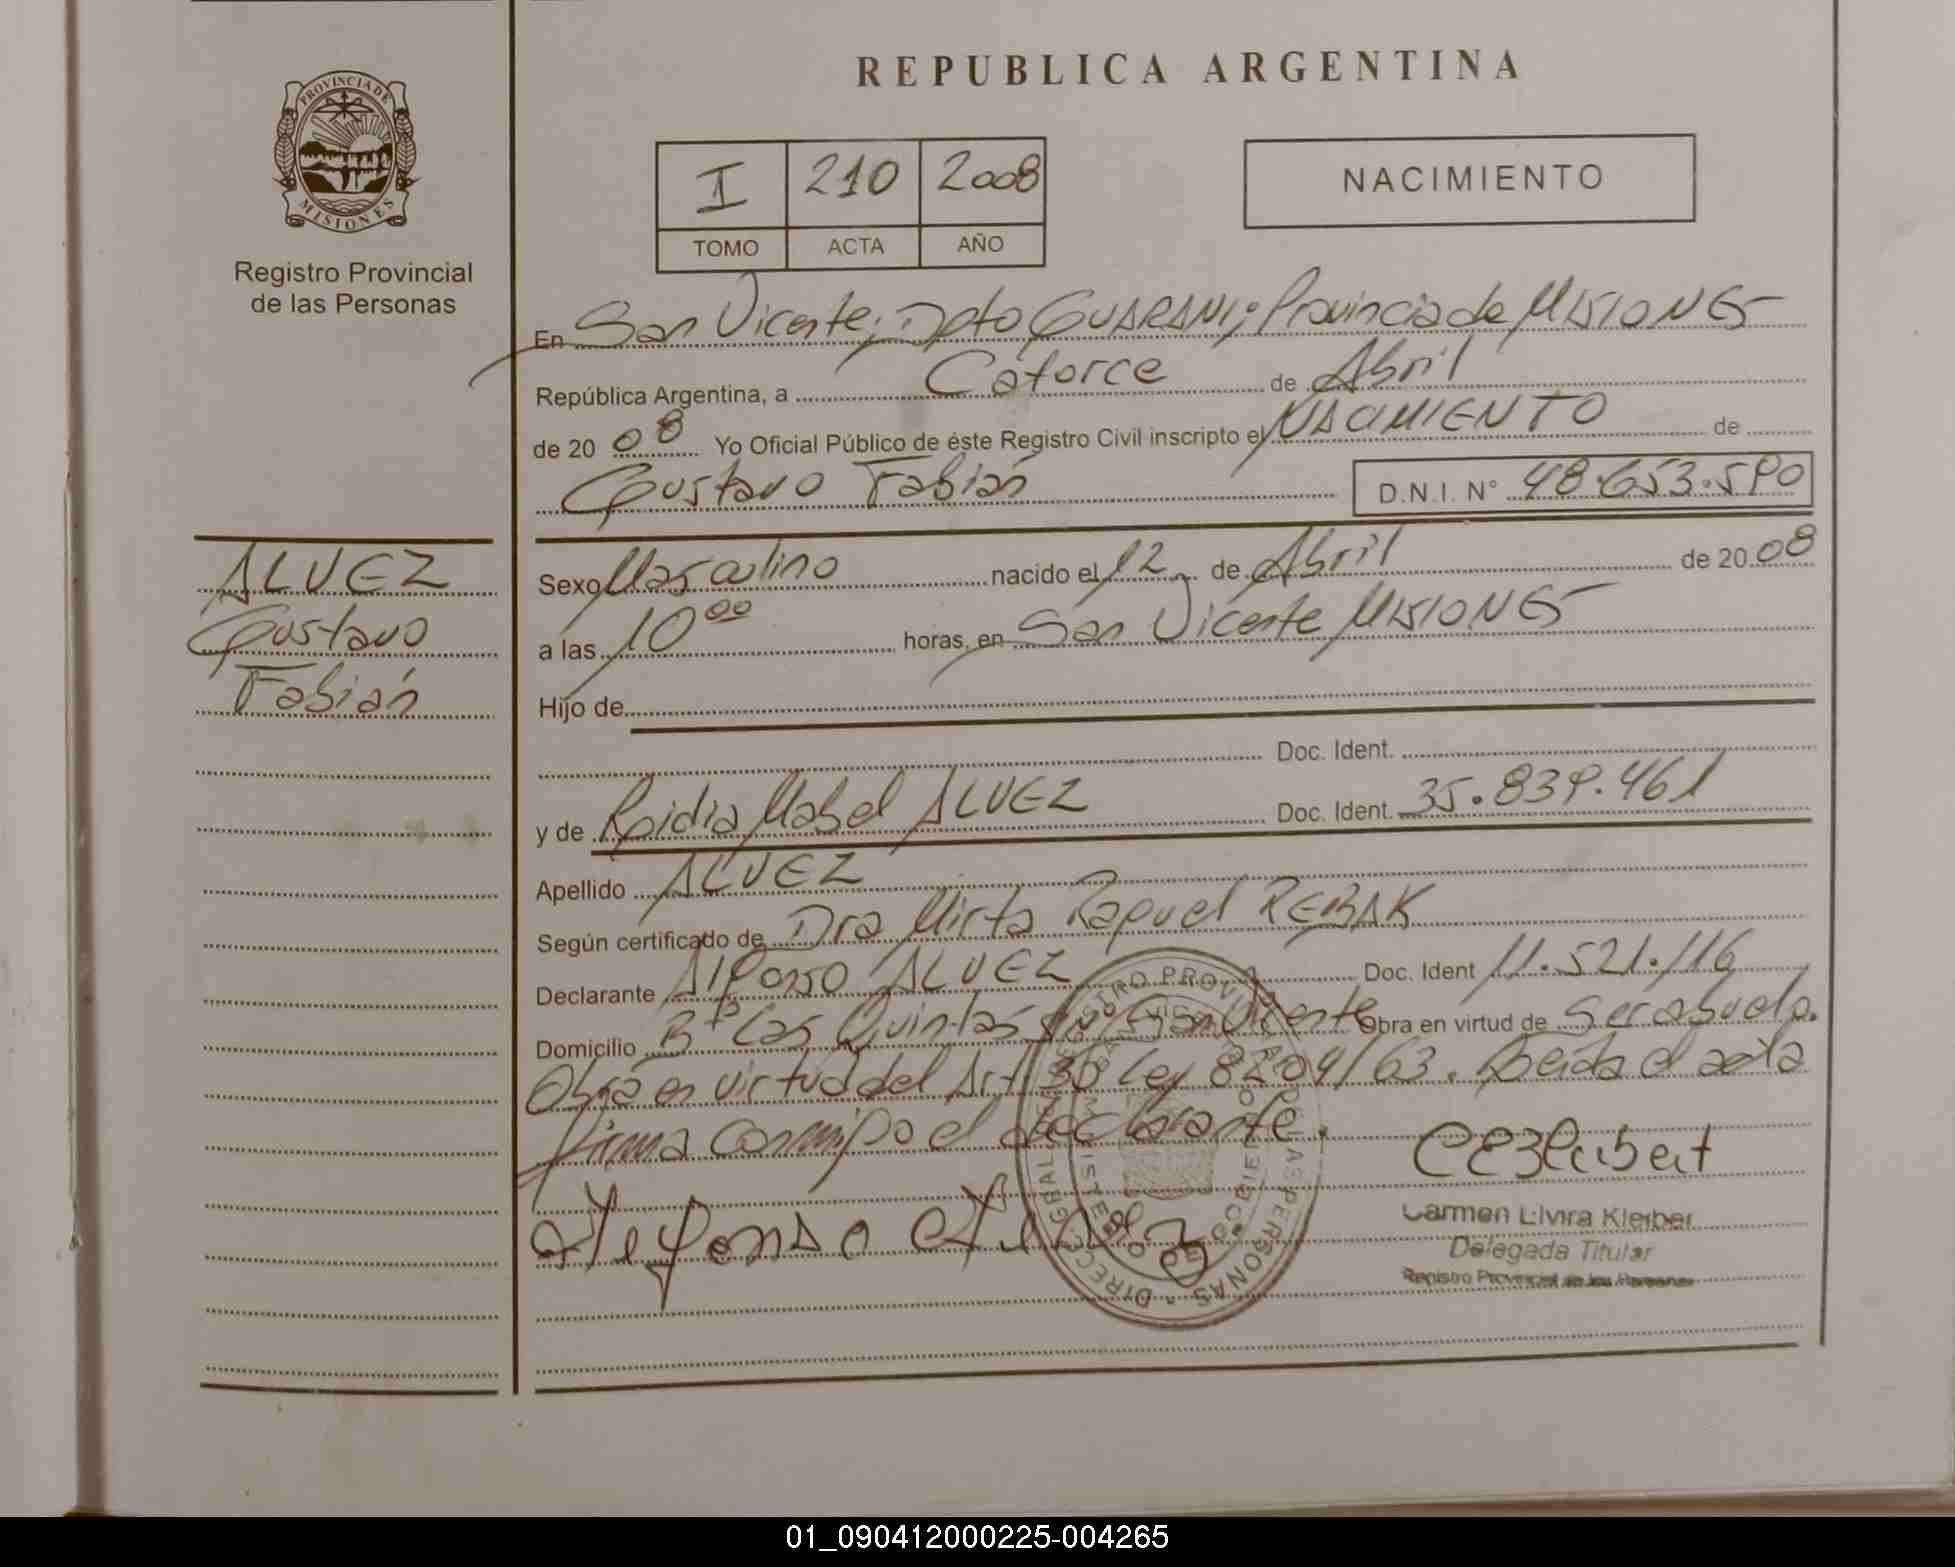 REPUBLICA ARGENTINA
PROVINCIA DE MISIONES
Registro Provincial
de las Personas
I 210 2008
TOMO ACTA AÑO
NACIMIENTO
En San Vicente; Dpto GUARANI; Provincia de MISIONES
República Argentina, a Catorce de Abril
de 20 08 Yo Oficial Público de éste Registro Civil inscripto el NACIMIENTO de
Gustavo Fabián D.N.I. N° 48.653.590
ALVEZ
Gustavo
Fabián
Sexo Masculino nacido el 12 de Abril de 20 08
a las 10 00 horas, en San Vicente MISIONES
Hijo de
Doc. Ident.
y de Mabel ALVEZ Doc. Ident. 35.839.461
Apellido ALVEZ
Según certificado de Dra Mirta Raquel REBAK
Declarante Alfonso ALVEZ Doc. Ident 11.521.116
Domicilio B° Las Quintas San Vicente Obra en virtud de ser abuelo.
Obra en virtud del Art. 36 Ley 8204/63. Leída el acta
firma conmigo el declarante.
Carmen Elvira Kleiber
Delegada Titular
Registro Provincial de las Personas
01_090412000225-004265